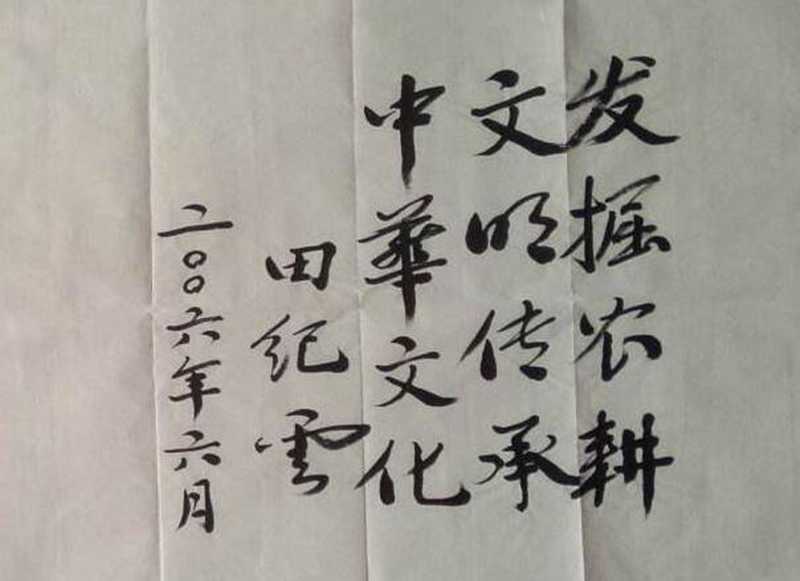 发掘农耕
文明传承
中華文化
田纪雲
二〇〇六年六月